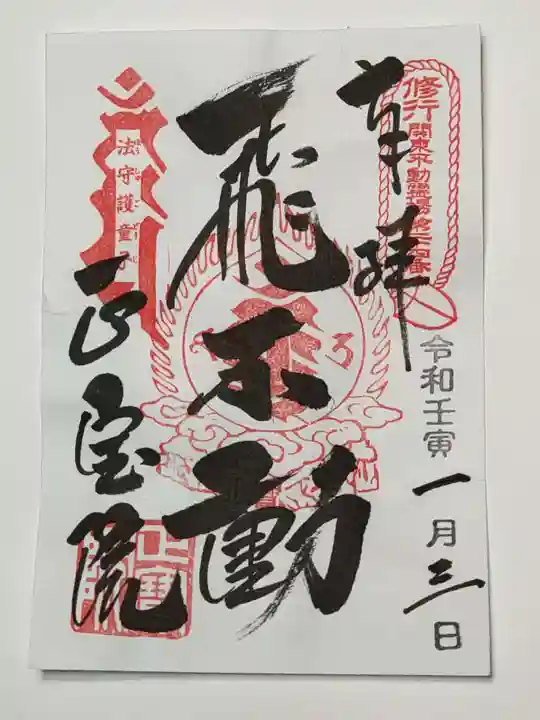 奉拝
修行 関東不動霊場第二十四番
令和壬寅
一月三日
飛不動
法守護童子
正宝院